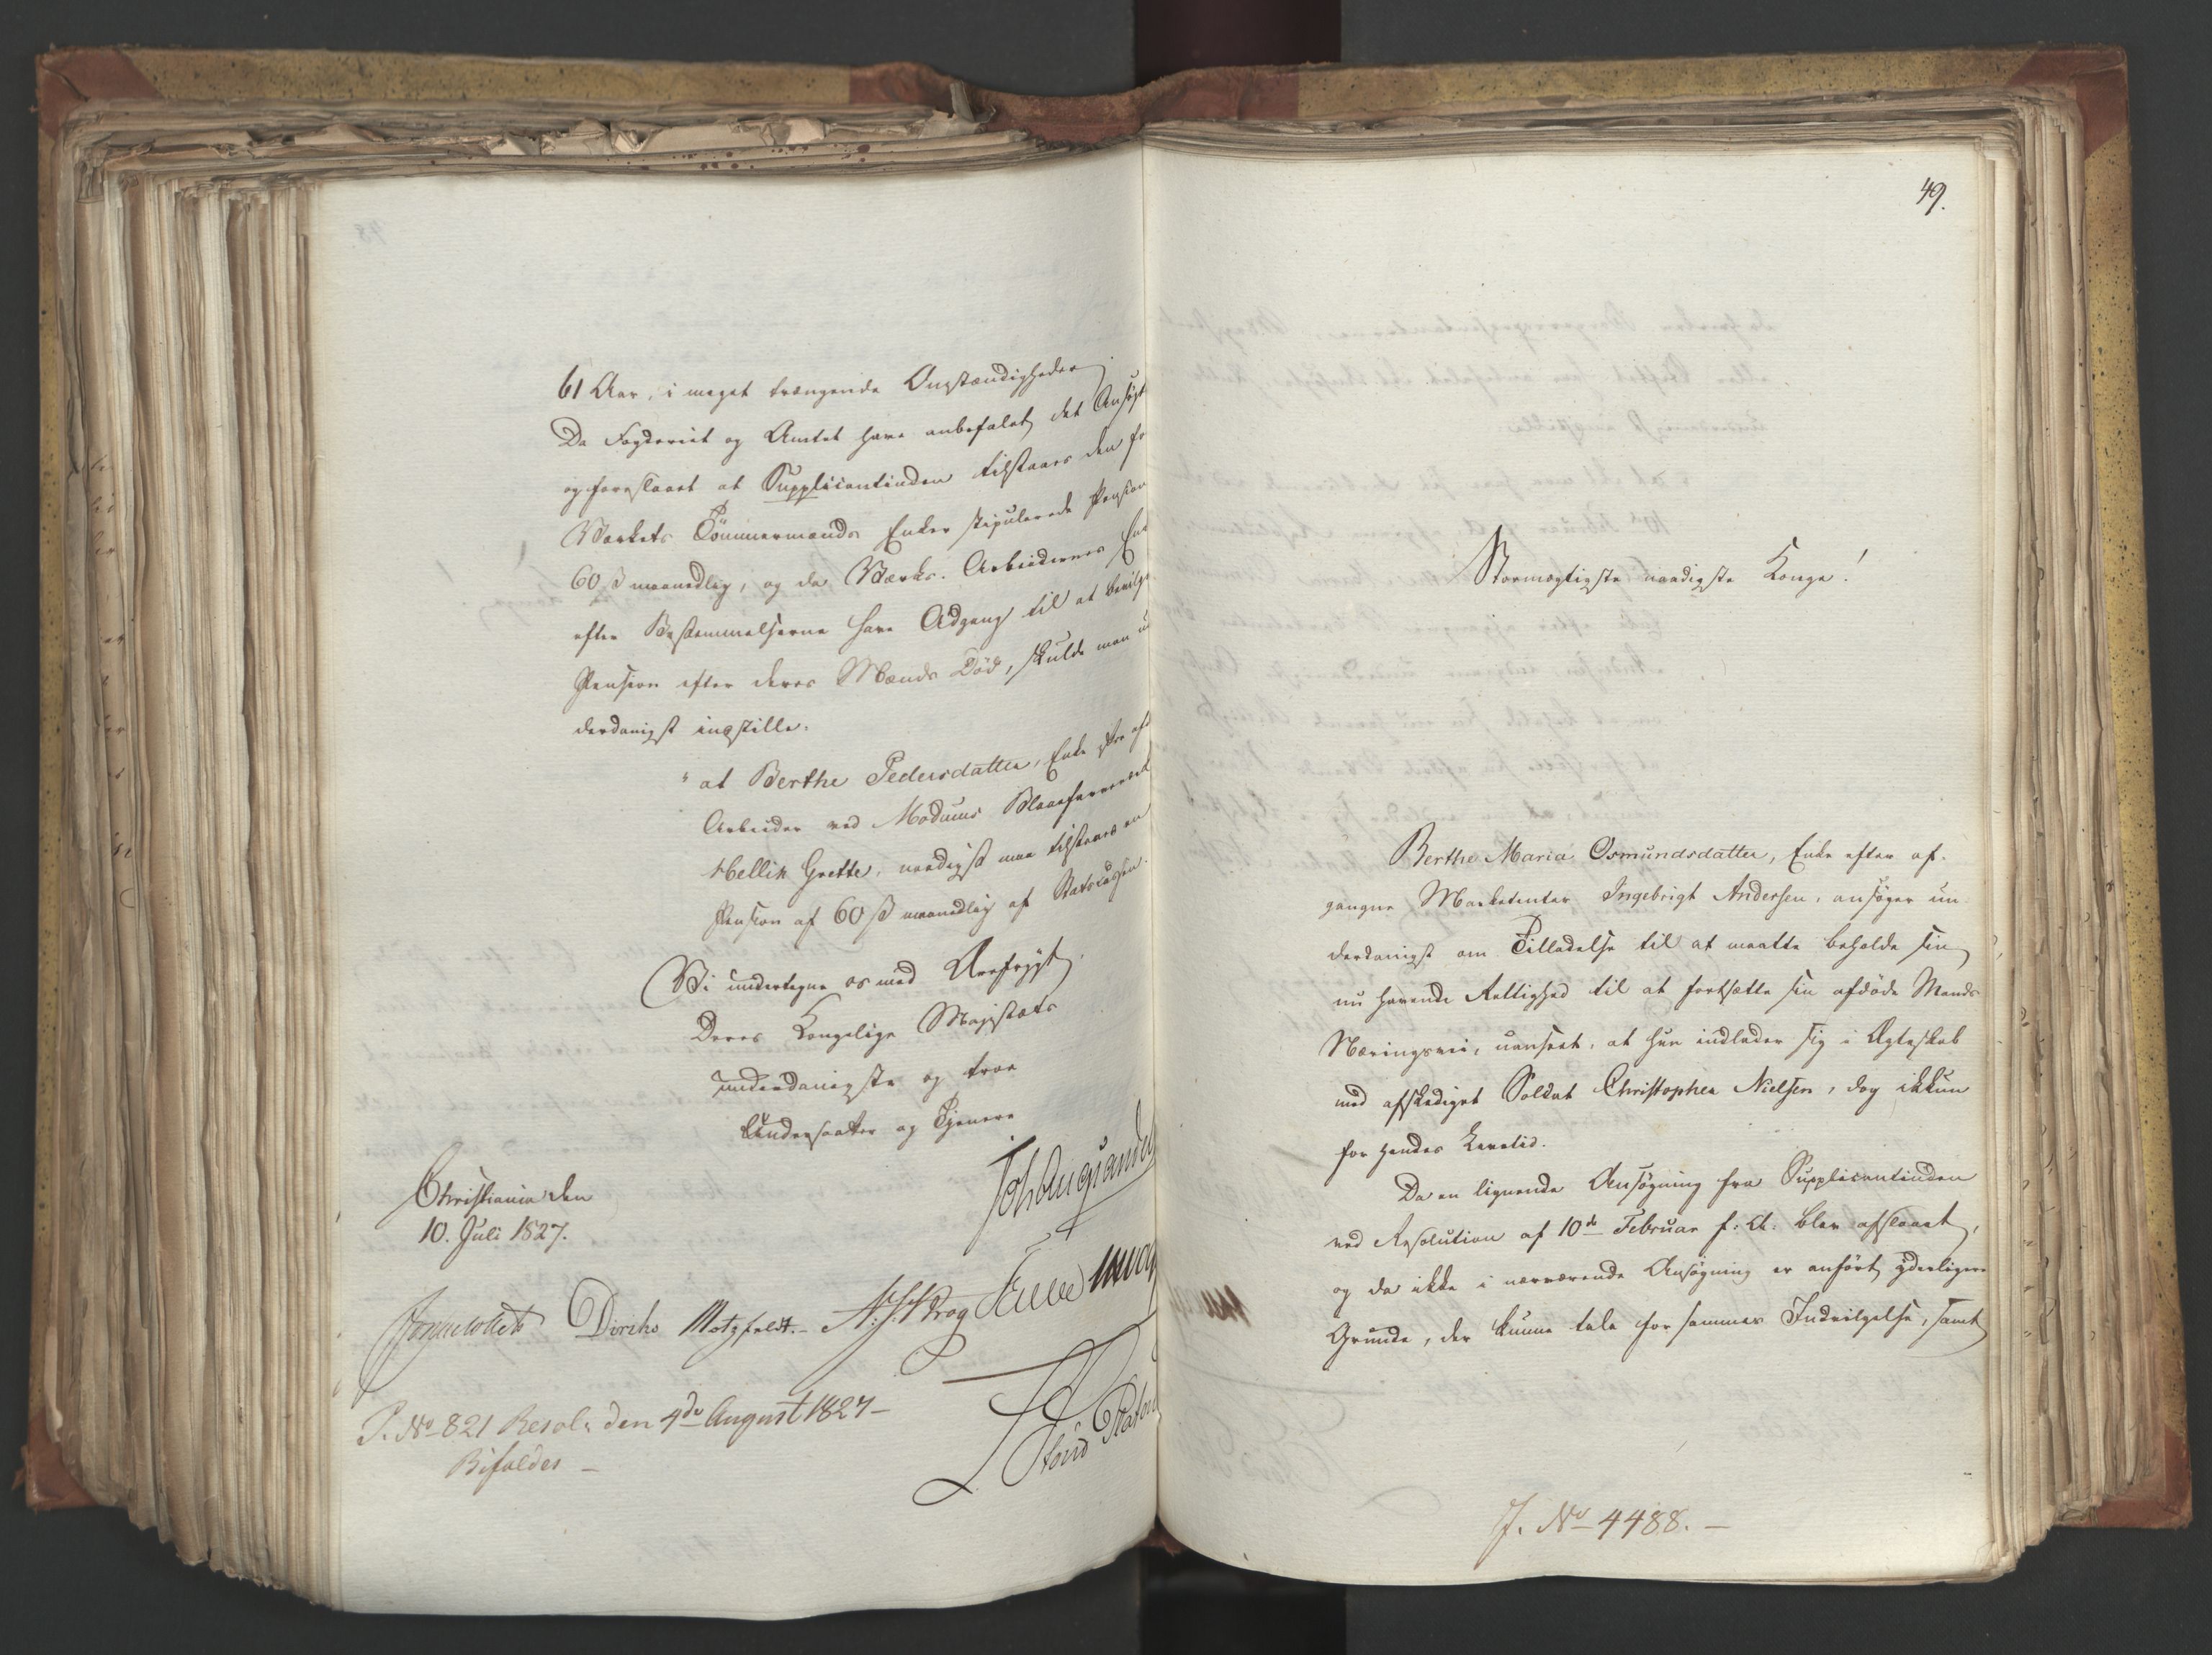 61 Aar, i meget trængende Omstændigheder.
Da Fogderiet og Amtet have anbefalet det Ansøgt
og foreslaaet at Supplicantinden tilstaaes den for
Værkets Tömmermænds Enker stipulerede Pension
60 ß maanedlig, og da Værks-Arbeidernes En
efter Bestemmelserne have Adgang til at bevilge
Pension efter deres Mænds Död, skulde man un
derdanigst indstille.
"at Berthe Pedersdatter, Enke efter
Arbeider ved Modums Blaafarveværk
Hellik Grette, naadigst maa tilstaaes en
Pension af 60 ß maanedlig af Statscassen.
Vi undertegne os med Ærefrygt
Deres Kongelige Majestæts
underdanigste og troe
Undersaatter og Tjenere
Christiania den
10. Juli 1827.
Diriks Motzfeldt.- Krog
P. No 821 Resol: den 4de August 1827 -
Bifaldes -
49.
Stormægtigste naadigste Konge!
Berthe Maria Osmundsdatter, Enke efter af-
gangne Marketenter Ingebrigt Andersen, ansøger un-
derdanigst om Tilladelse til at maatte beholde sin
nu havende Rettighed til at fortsætte sin afdöde Mands
Næringsvei, uanseet, at hun indlader sig i Ægteskab
med afskediget Soldat Christopher Nielsen, dog ikkun
for hendes Levetid.
Da en lignende Ansøgning fra Supplicantinden
ved Resolution af 10de Februar f: A: blev afslaaet,
og da ikke i nærværende Ansøgning er anført yderligere
Grunde, der kunne tale for sammes Indvilgelse, samt
J. No 4488. -